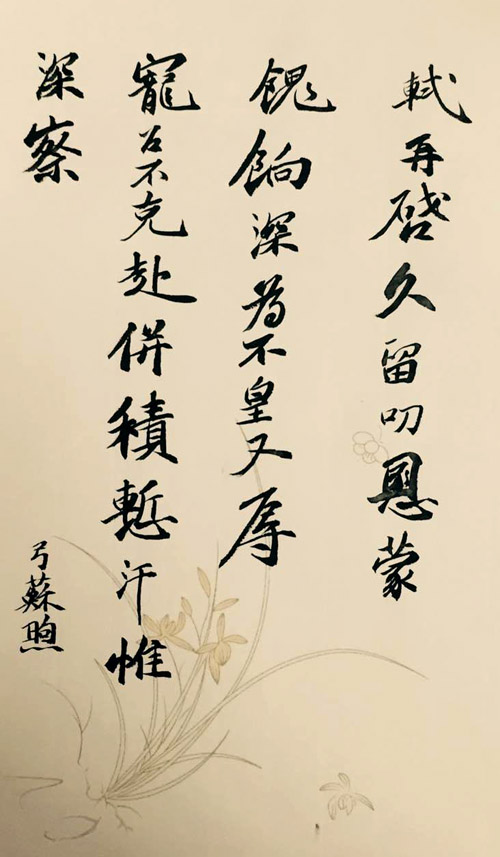 軾再啓久留叨恩蒙
餽餉深為不皇又辱
寵召不克赴併積慙汗惟
深察
弓蘇煦